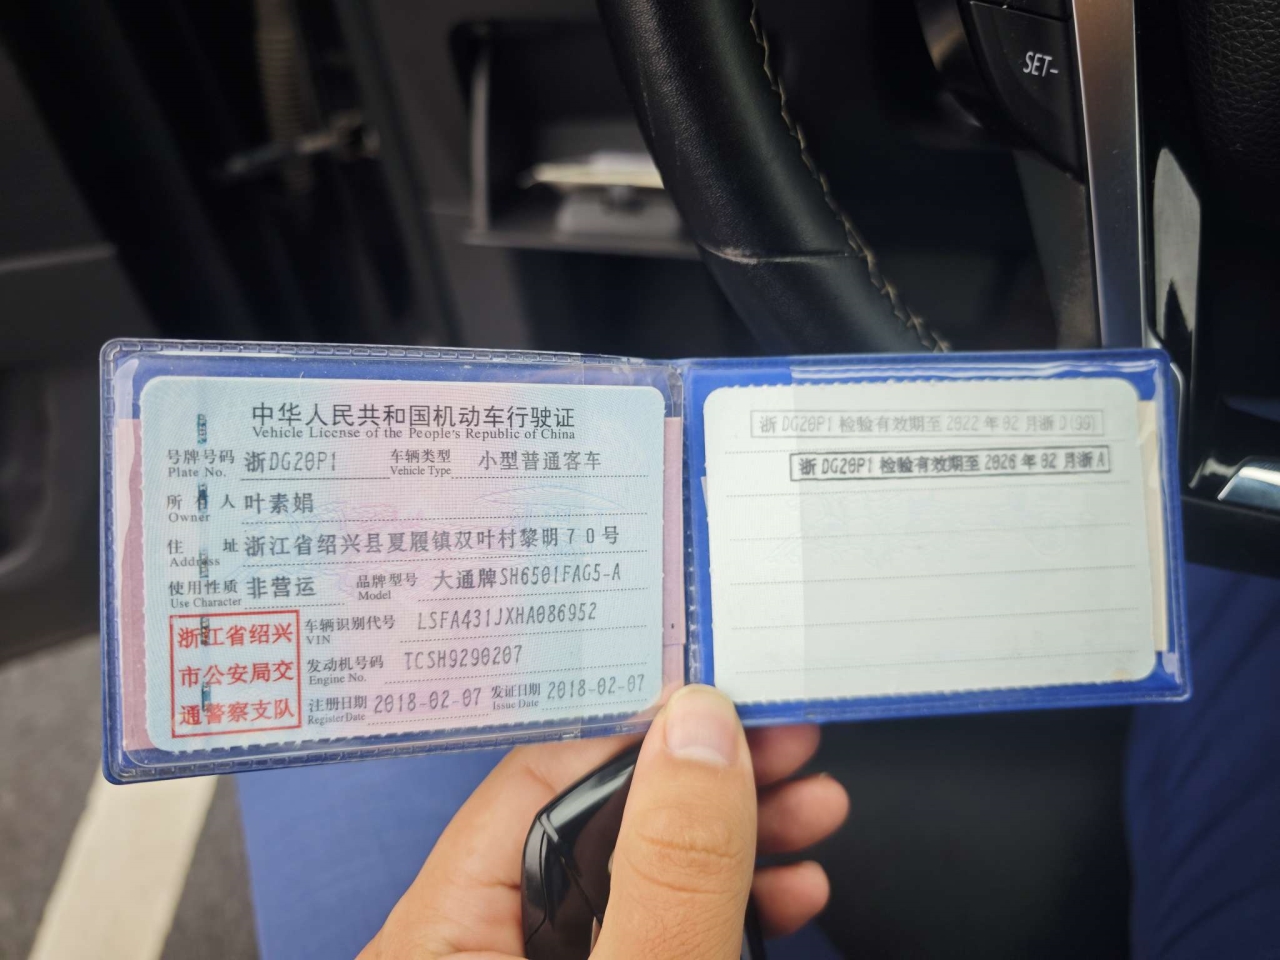 SET-
中华人民共和国机动车行驶证
Vehicle License of the People's Republic of China
号牌号码 浙DG20P1 车辆类型 小型普通客车
Plate No. Vehicle Type
所有人 叶素娟
Owner
住址 浙江省绍兴县夏履镇双叶村黎明70号
Address
使用性质 非营运 品牌型号 大通牌SH6501FAG5-A
Use Character Model
浙江省绍兴
市公安局交
通警察支队
车辆识别代号 LSFA431JXHA086952
VIN
发动机号码 TCSH9290207
Engine No.
注册日期 2018-02-07 发证日期 2018-02-07
Register Date Issue Date
浙DG20P1 检验有效期至 2022 年 02 月浙 D(99)
浙DG20P1 检验有效期至 2026 年 02 月浙 A